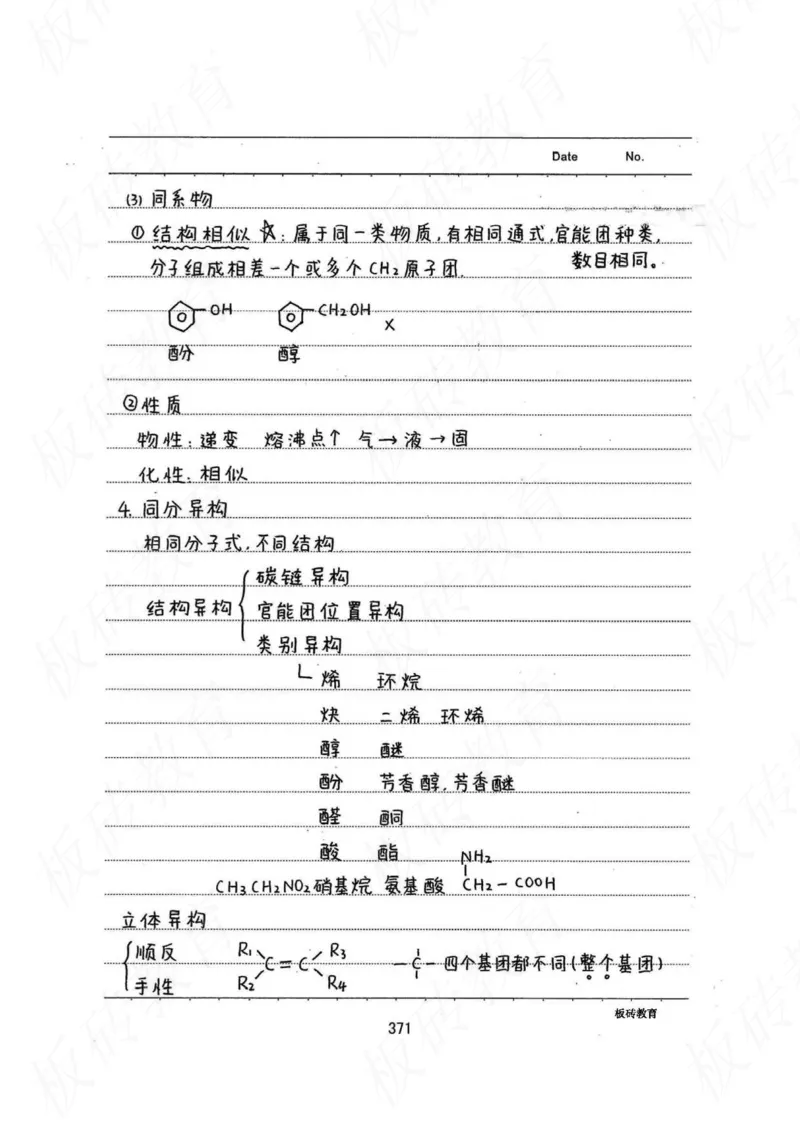 Date No.
(3) 同系物
① 结构相似 ☆: 属于同一类物质,有相同通式,官能团种类,
数目相同。
分子组成相差一个或多个CH₂原子团.
OH CH₂OH ×
酚 醇
②性质
物性: 递变 熔沸点↑ 气→液→固
化性: 相似
4. 同分异构
相同分子式,不同结构
碳链异构
结构异构 官能团位置异构
类别异构
烯 环烷
炔 二烯 环烯
醇 醚
酚 芳香醇,芳香醚
醛 酮
酸 酯
NH₂
CH₃CH₂NO₂硝基烷 氨基酸 CH₂-COOH
立体异构
顺反 R₁ R₃
C=C -C- 四个基团都不同(整个基团)
手性 R₂ R₄
板砖教育
371